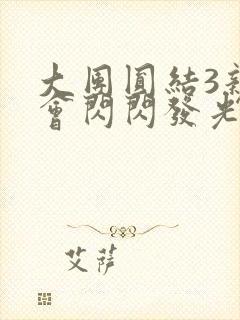 大團圓結3新
會閃閃發光
艾薩